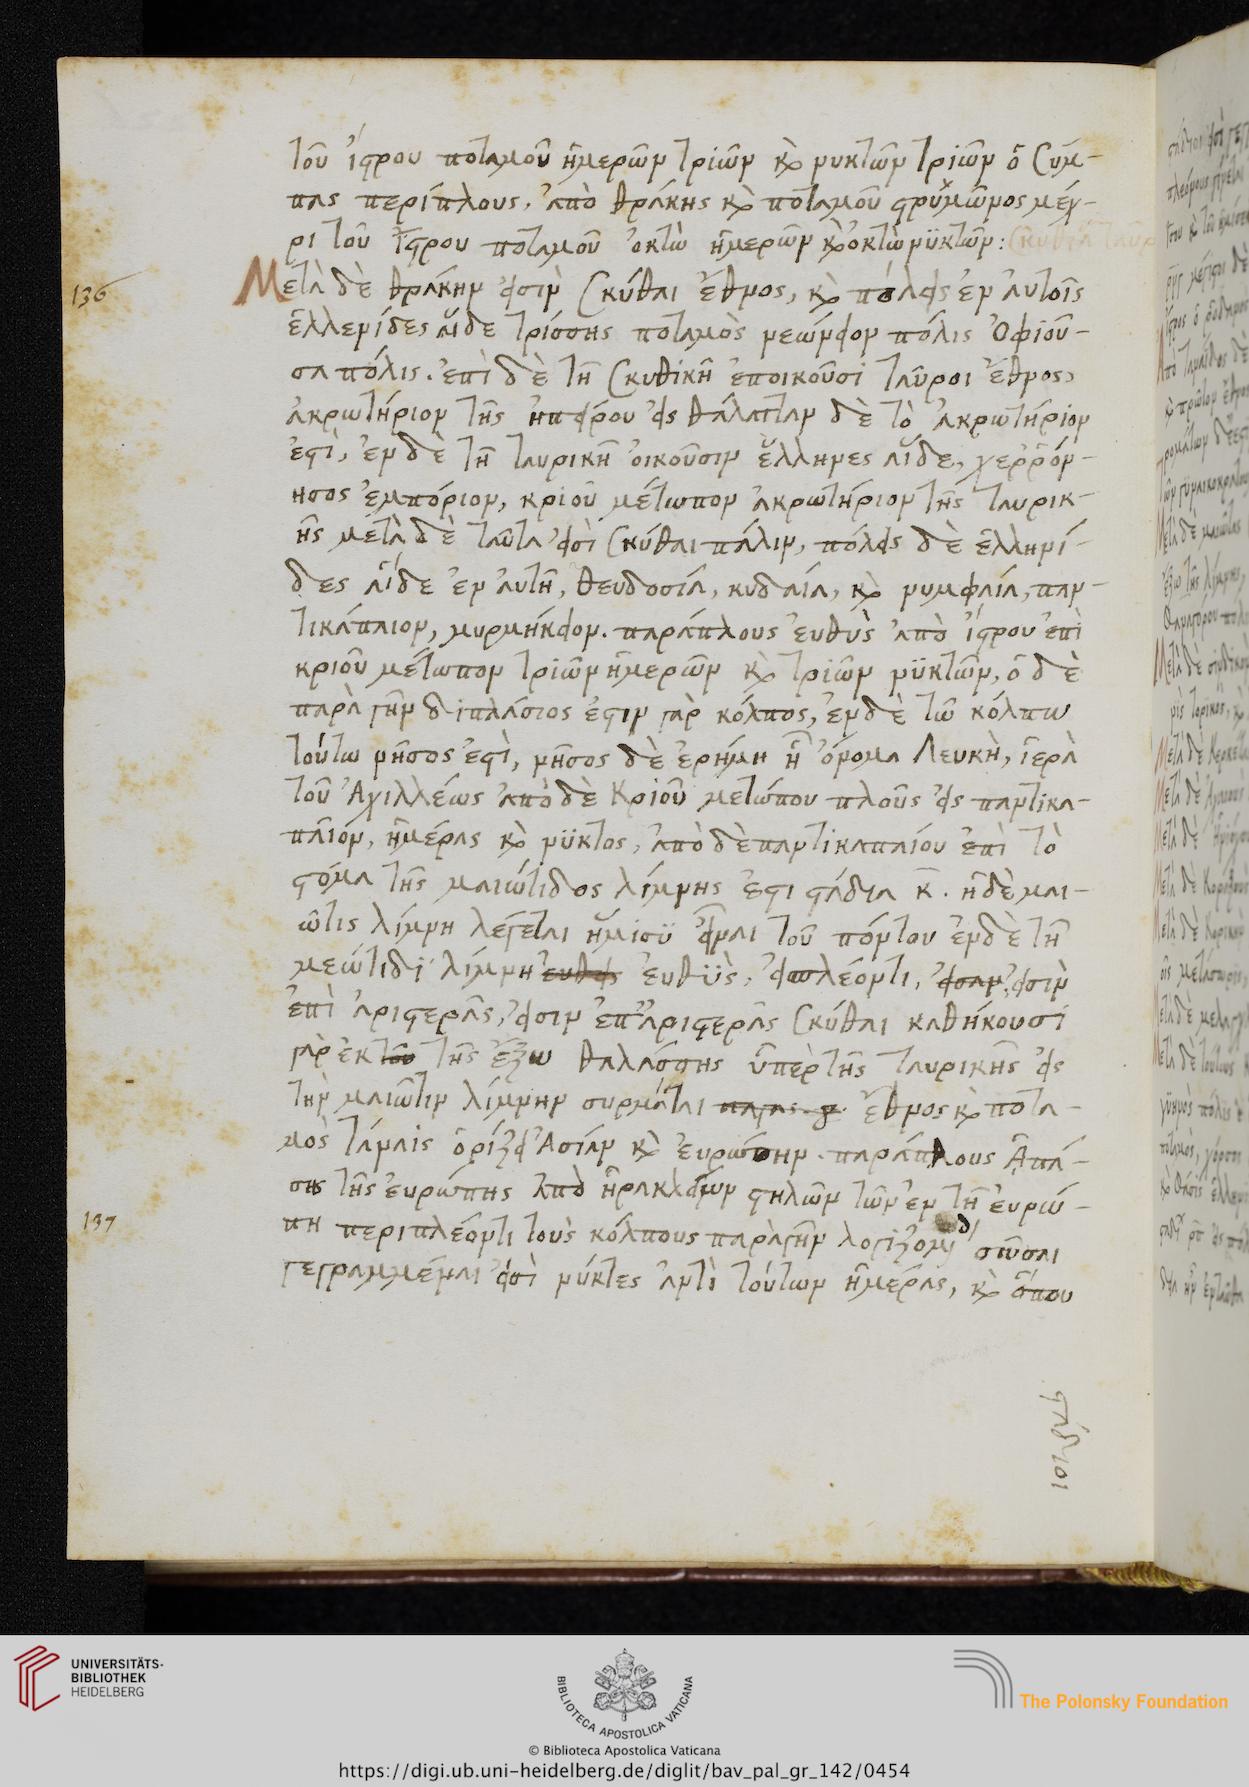 τοῦ ἴστρου ποταμοῦ ἡμερῶν τριῶν κὶ νυκτῶν τριῶν ὁ σύμ-
πας περίπλους, ἀπὸ θράκης κὶ ποταμοῦ στρυμῶνος μέχ-
ρι τοῦ ἴστρου ποταμοῦ ὀκτὼ ἡμερῶν κὶ ὀκτὼ νϋκτῶν:
136
Μετὰ δὲ θράκην εἰσὶν Σκύθαι ἔθνος, κὶ πόλεις ἐν αὐτοῖς
ἑλλενίδες αἵδε τρίσσης ποταμὸς νεώνειον πόλις Ὀφιοῦ-
σα πόλις. ἐπὶ δὲ τῆ Σκυθικῆ ἐποικοῦσι ταῦροι ἔθνος,
ἀκρωτήριον τῆς ἠπείρου εἰς θάλατταν δὲ τὸ ἀκρωτήριόν
ἐστὶ, ἐν δὲ τῆ ταυρικῆ οἰκοῦσιν ἕλληνες αἵδε, χερρόν-
ησος ἐμπόριον, κριοῦ μέτωπον ἀκρωτήριον τῆς ταυρικ-
ῆς μετὰ δὲ ταῦτα εἰσὶ Σκύθαι πάλιν, πόλεις δὲ ἑλληνί-
δες αἵδε ἐν αὐτῆ, θευδοσία, κυδαία, κὶ νυμφαία, παν-
τικάπαιον, μυρμήκειον. παράπλους εὐθὺς ἀπὸ ἴστρου ἐπὶ
κριοῦ μέτωπον τριῶν ἡμερῶν κὶ τριῶν νϋκτῶν, ὁ δὲ
παρὰ γῆν διπλάσιος ἐστιν γὰρ κόλπος, ἐν δὲ τῶ κόλπω
τούτω νῆσος ἐστὶ, νῆσος δὲ ἐρήμη ἧ ὄνομα Λευκὴ, ἱερὰ
τοῦ Ἀχιλλέως ἀπὸ δὲ Κριοῦ μετώπου πλοῦς εἰς παντικα-
πᾶιόν, ἡμέρας κὶ νϋκτος, ἀπὸ δὲ παντικαπαίου ἐπὶ τὸ
στόμα τῆς μαιώτιδος λίμνης ἐστι στάδια κ. ἡ δὲ μαι-
ῶτις λίμνη λέγεται ἥμισϋ εἶναι τοῦ πόντου ἐν δὲ τῆ
μεώτιδι λίμνη εὐθεις εὐθϋς, εἰσπλέοντι, εἰσαν, εἰσὶν
ἐπὶ ἀριστερᾶς, εἰσιν ἐπ' ἀριστερᾶς Σκύθαι καθήκουσί
γὰρ ἐκ τοῦ τῆς ἔξω θαλάσσης ὑπὲρ τῆς ταυρικῆς εἰς
τὴν μαιῶτιν λίμνην συρμάται ἔθνος κὶ ποτα-
μὸς τάναις ὁρίζει Ἀσίαν κὶ εὐρώπην. παράπλους ἁπά-
σης τῆς εὐρώπης ἀπὸ ἡρακλείων στηλῶν τῶν ἐν τῆ εὐρώ-
137
πη περιπλέοντι τοὺς κόλπους παρὰ γῆν λογιζομένῳ ὅσαι
γεγραμμέναι εἰσὶ νύκτες ἀντὶ τούτων ἡμέρας, κὶ ὅπου
στάδιοι
UNIVERSITÄTS-
BIBLIOTHEK
HEIDELBERG
BIBLIOTECA APOSTOLICA VATICANA
The Polonsky Foundation
© Biblioteca Apostolica Vaticana
https://digi.ub.uni-heidelberg.de/diglit/bav_pal_gr_142/0454